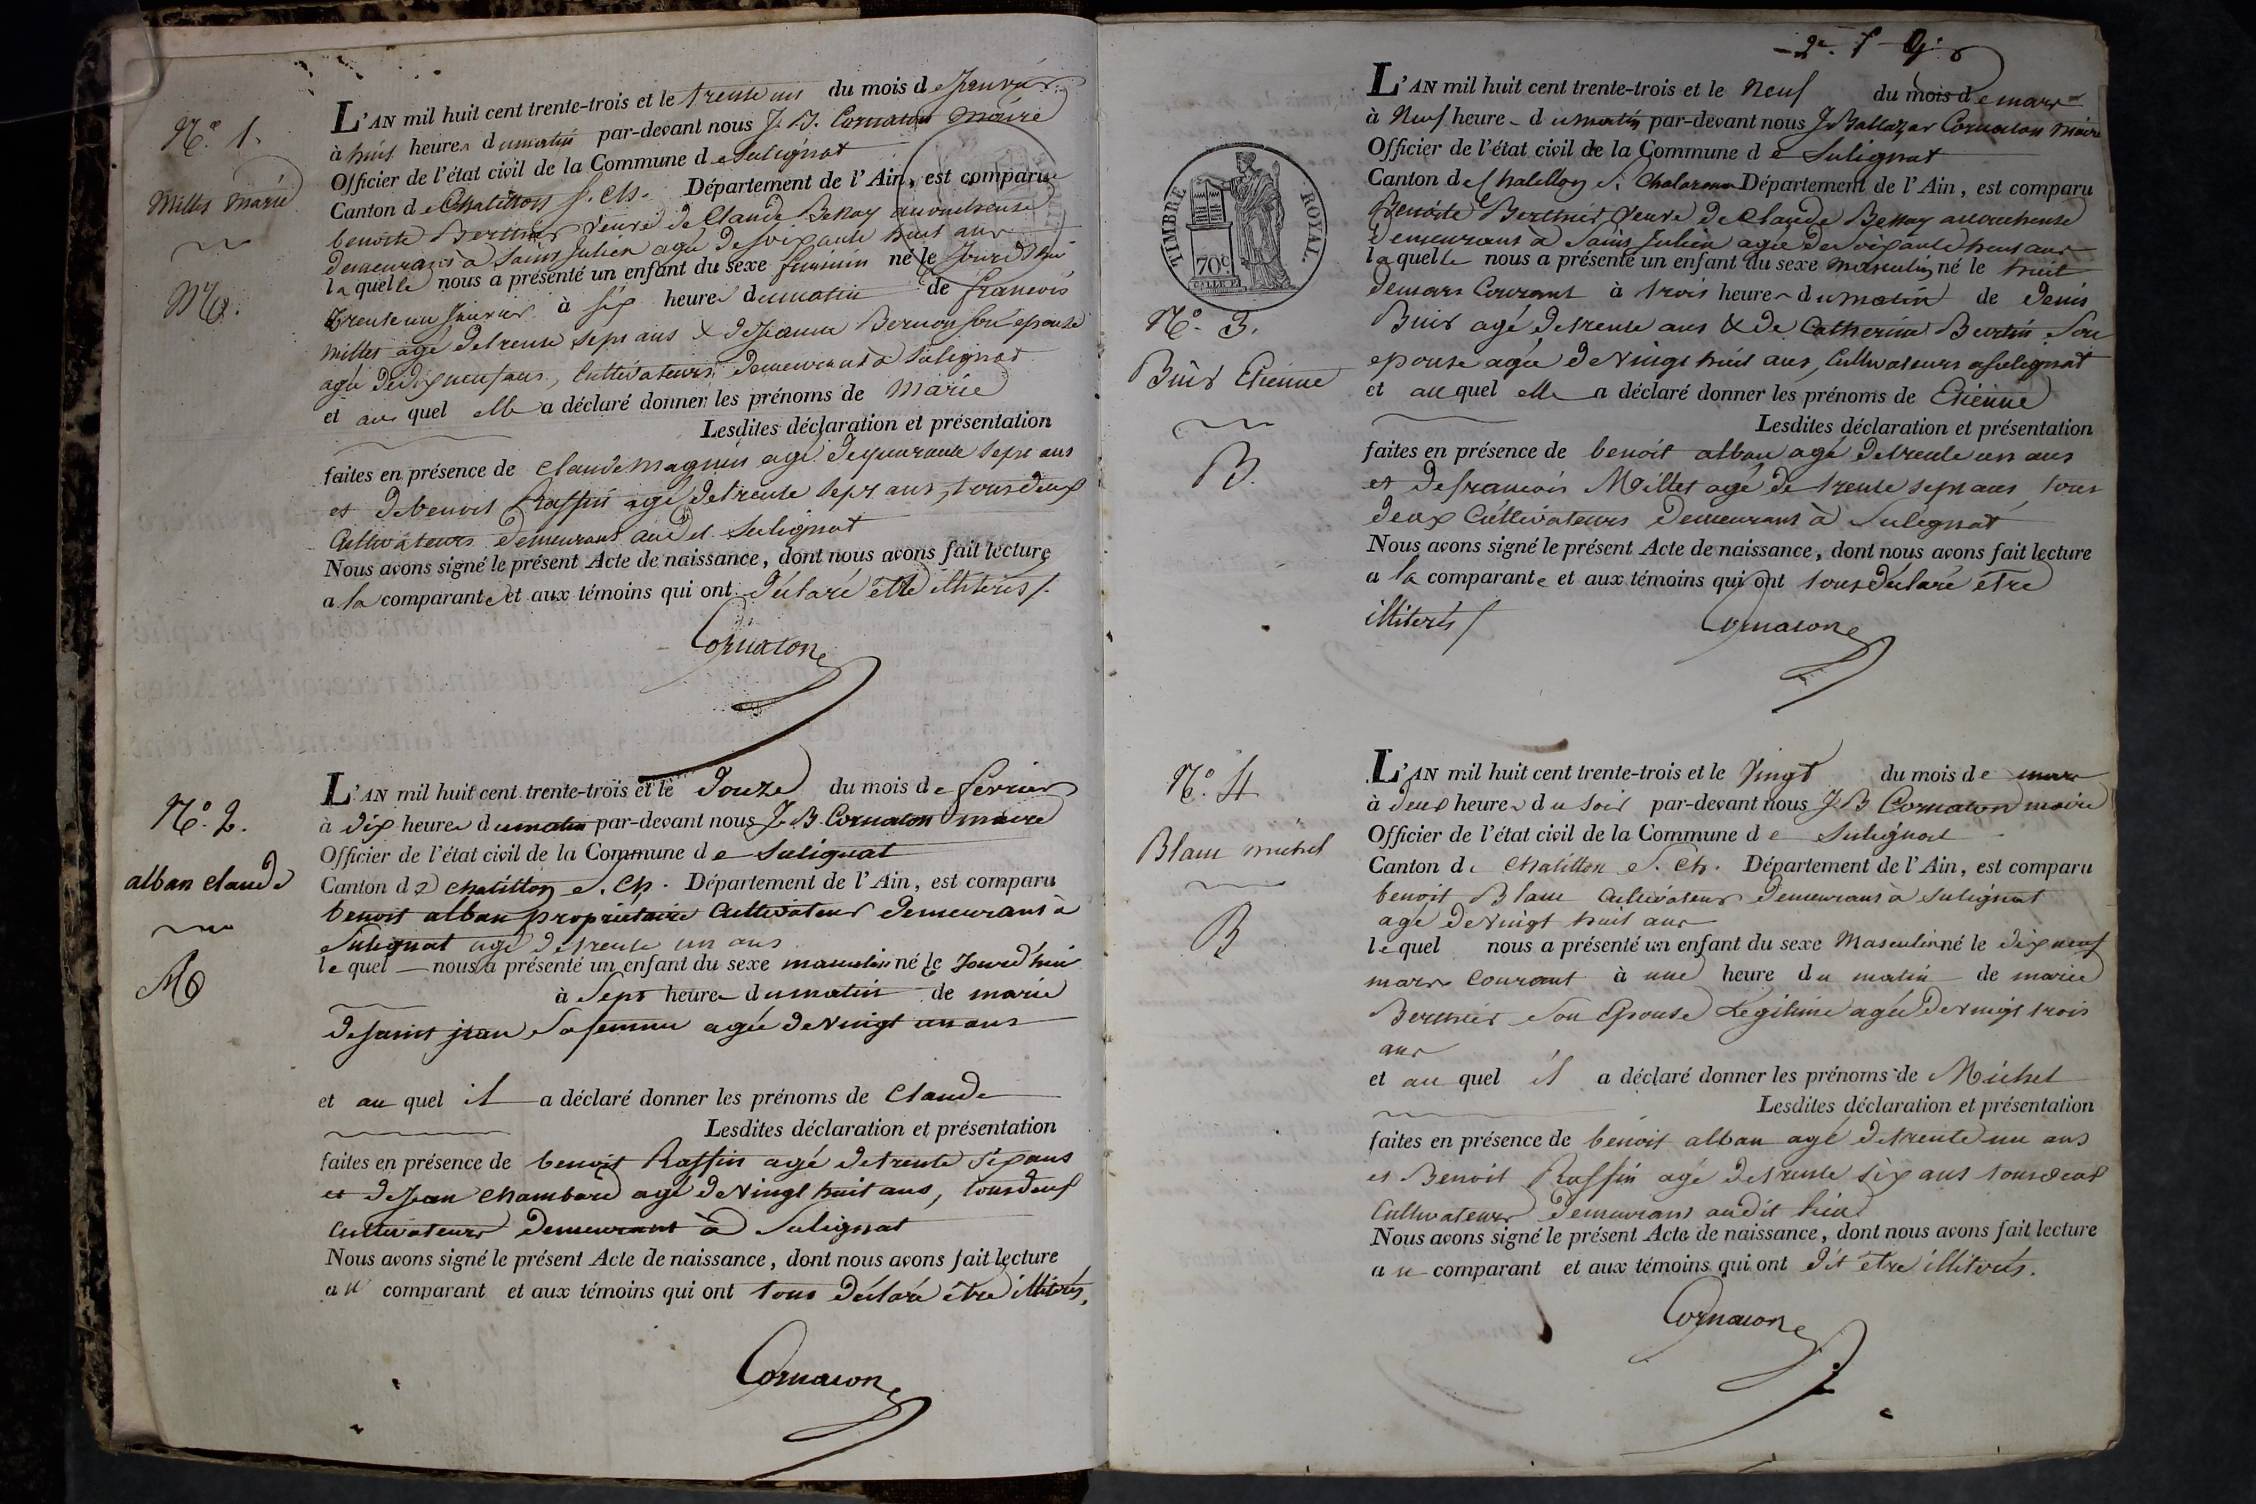 N.o 1.
Millet marie
M.
L'AN mil huit cent trente-trois et le trente un du mois de Janvier
à huit heures du matin par-devant nous J. B. Cornaton maire
Officier de l'état civil de la Commune de Sulignat
Canton de Chatillon s. Ch. Département de l'Ain, est comparu
benoite Berthier veuve de Claude Bessay accoucheuse
demeurant à Saint Julien agée de soixante huit ans
laquelle nous a présenté un enfant du sexe feminin né le Jourd'hui
trente un Janvier à six heures du matin de francois
Millet agé de trente sept ans & de Jeanne son epouse
agée de dix neuf ans, Cultivateurs demeurant à Sulignat
et au quel elle a déclaré donner les prénoms de Marie
Lesdites déclaration et présentation
faites en présence de Claude Magnin agé de quarante sept ans
et de benoit Raffin agé de trente sept ans, tous deux
Cultivateurs demeurant au dit Sulignat
Nous avons signé le présent Acte de naissance, dont nous avons fait lecture
a la comparante et aux témoins qui ont déclaré être illiterés /.
Cornaton
N.o 2.
alban claude
M
L'AN mil huit cent trente-trois et le Douze du mois de fevrier
à dix heures du matin par-devant nous J. B. Cornaton maire
Officier de l'état civil de la Commune de Sulignat
Canton de chatillon s. Ch. Département de l'Ain, est comparu
benoit alban propriétaire Cultivateur demeurant à
Sulignat agé de trente un ans
le quel nous a présenté un enfant du sexe masculin né le Jourd'hui
à Sept heures du matin de marie
de saint jean sa femme agée de vingt un ans
et au quel il a déclaré donner les prénoms de Claude
Lesdites déclaration et présentation
faites en présence de benoit Raffin agé de trente six ans
et de Jean Chambard agé de vingt huit ans, tous deux
Cultivateurs demeurant à Sulignat
Nous avons signé le présent Acte de naissance, dont nous avons fait lecture
au comparant et aux témoins qui ont tous déclaré être illiterés,
Cornaton
TIMBRE ROYAL.
70c
N.o 3.
Buis Etienne
B.
L'AN mil huit cent trente-trois et le Neuf du mois de mars
à Neuf heures du matin par-devant nous J. Baltazar Cornaton Maire
Officier de l'état civil de la Commune de Sulignat
Canton de Chatillon s. Chalaronne Département de l'Ain, est comparu
Benoite Berthier Veuve de Claude Bessay accoucheuse
demeurant à Saint Julien agée de soixante huit ans
laquelle nous a présenté un enfant du sexe masculin né le huit
de mars Courant à trois heures du matin de Denis
Buis agé de trente ans & de Catherine Bertin Son
epouse agée de Vingt huit ans, Cultivateurs a Sulignat
et au quel elle a déclaré donner les prénoms de Etienne
Lesdites déclaration et présentation
faites en présence de benoit alban agé de trente un ans
et de francois Millet agé de trente sept ans tous
deux Cultivateurs demeurant à Sulignat
Nous avons signé le présent Acte de naissance, dont nous avons fait lecture
a la comparante et aux témoins qui ont tous déclaré être
illiterés /
Cornaton
N.o 4
Blanc michel
B
L'AN mil huit cent trente-trois et le Vingt du mois de mars
à deux heures du soir par-devant nous J. B. Cornaton maire
Officier de l'état civil de la Commune de Sulignat
Canton de Chatillon s. Ch. Département de l'Ain, est comparu
benoit Blanc Cultivateur demeurant à Sulignat
agé de vingt huit ans
le quel nous a présenté un enfant du sexe Masculin né le dix neuf
mars Courant à une heure du matin de marie
Berthier son Epouse Légitime agée de vingt trois
ans
et au quel il a déclaré donner les prénoms de Michel
Lesdites déclaration et présentation
faites en présence de benoit alban agé de trente un ans
et Benoit Raffin agé de trente six ans tous deux
Cultivateurs demeurant au dit lieu
Nous avons signé le présent Acte de naissance, dont nous avons fait lecture
au comparant et aux témoins qui ont dit être illiterés.
Cornaton